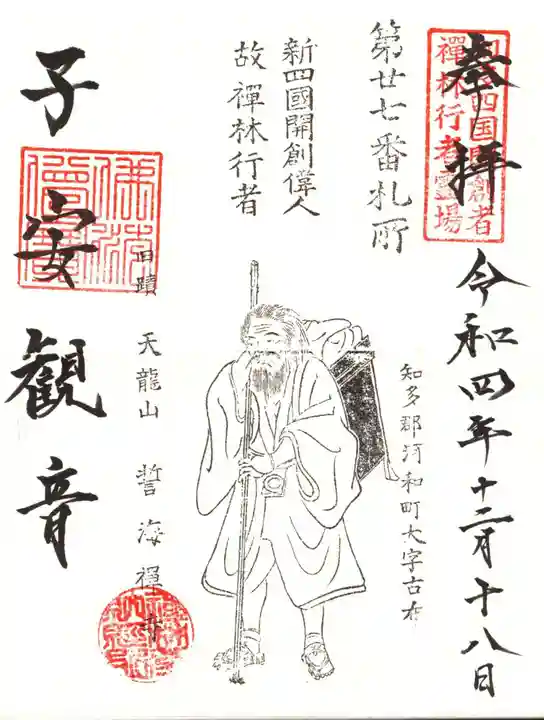 奉拝
令和四年十二月十八日
四国開創者
禪林行者霊場
第廿七番札所
新四國開創偉人
故禪林行者
知多郡河和町大字古布
子安觀音
旧蹟
天龍山
誓海禪寺
佛法僧寶